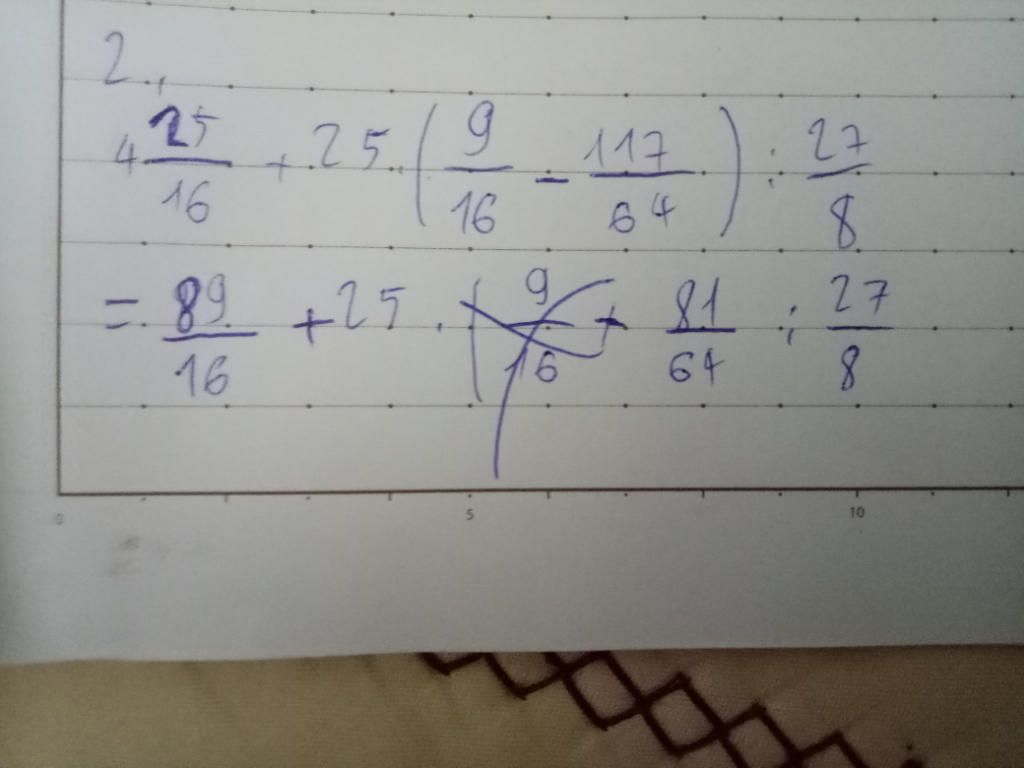 2.,
4 25/16 + 25 · (9/16 - 117/64) : 27/8
= 89/16 + 25 · (9/16 + 81/64 : 27/8
0 5 10